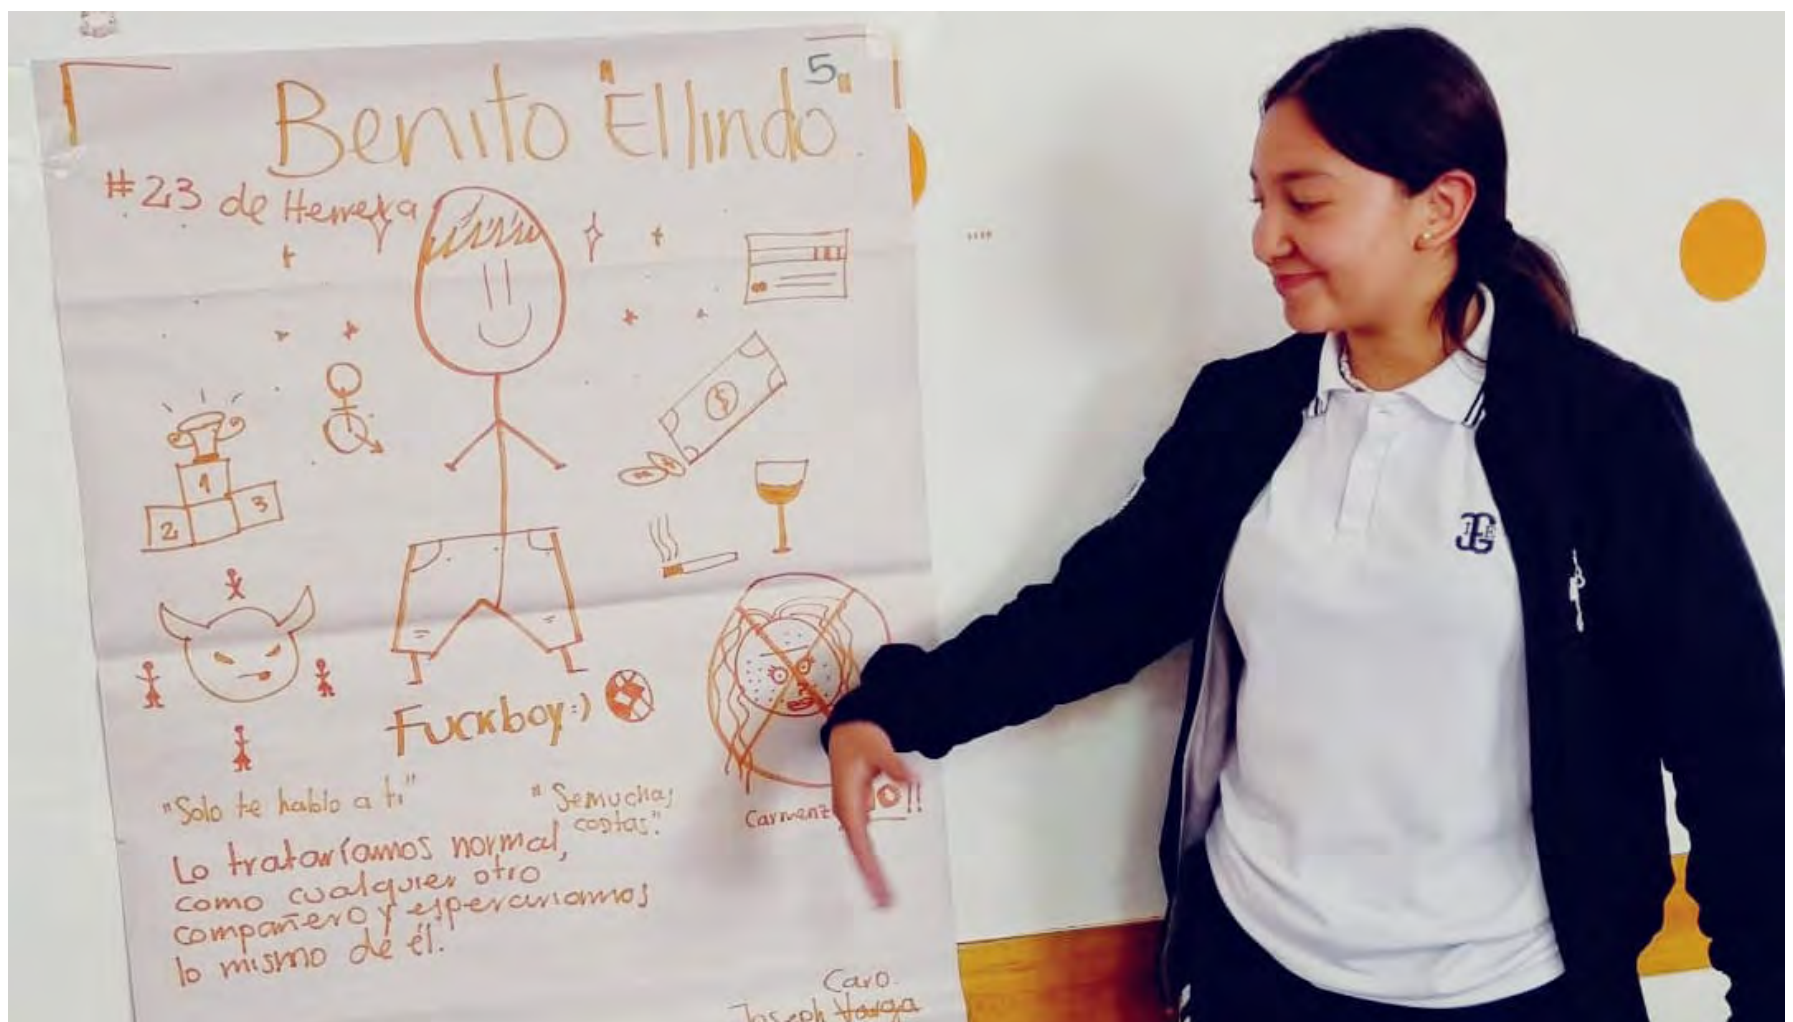 5.
Benito "El lindo"
#23 de Herrera
$
1
2
3
Fuckboy:)
"Solo te hablo a ti"
"Semuchas
costas".
Carmenz
O!!
Lo trataríamos normal,
como cualquier otro
compañero y esperaríamos
lo mismo de él.
Caro.
Joseph Varga